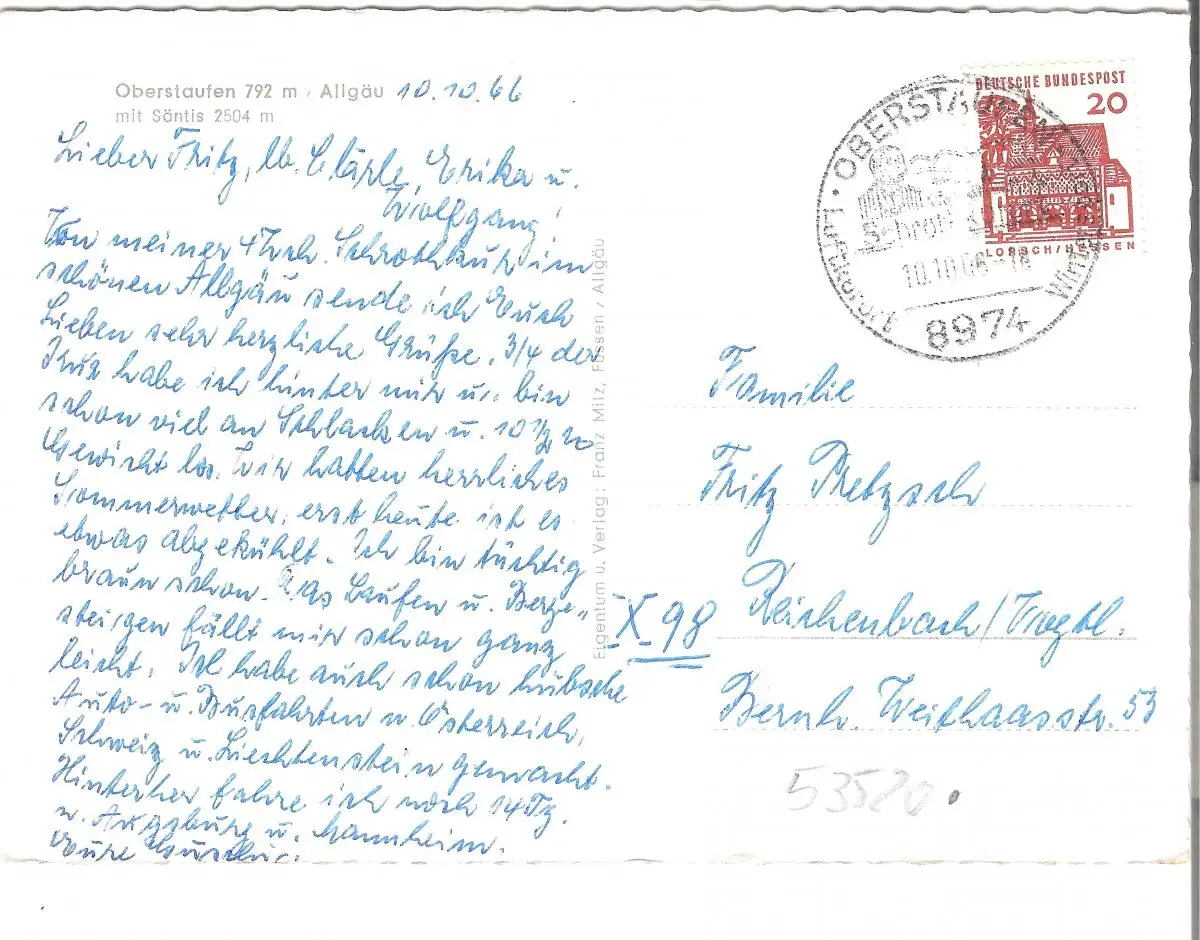 Oberstaufen 792 m, Allgäu 10.10.66
mit Säntis 2504 m
Lieber Fritz, lb. Clärle, Erika u.
Wolfgang!
Von meiner 4 Wch. Schrothkur im
schönen Allgäu sende ich Euch
Lieben sehr herzliche Grüße. 3/4 der
Kur habe ich hinter mir u. bin
schon viel an Schlacken u. 10 1/2
Gewicht los. Wir hatten herrliches
Sommerwetter, erst heute ist es
etwas abgekühlt. Ich bin tüchtig
braun schon. Das Laufen u. Berge-
steigen fällt mir schon ganz
leicht. Ich habe auch schon hübsche
Auto- u. Busfahrten n. Österreich,
Schweiz u. Liechtenstein gemacht.
Hinterher fahre ich noch 14 Tg.
n. Augsburg u. Mannheim.
Eure
Eigentum u. Verlag: Franz Milz, Füssen / Allgäu
DEUTSCHE BUNDESPOST
20
LORSCH/HESSEN
OBERSTAUFEN
Luftkurort
Schroth
10.10.66
8974
Familie
Fritz Pretzsch
X 98
Reichenbach/Vogtl.
Bernh. Weithaasstr. 53
53520.